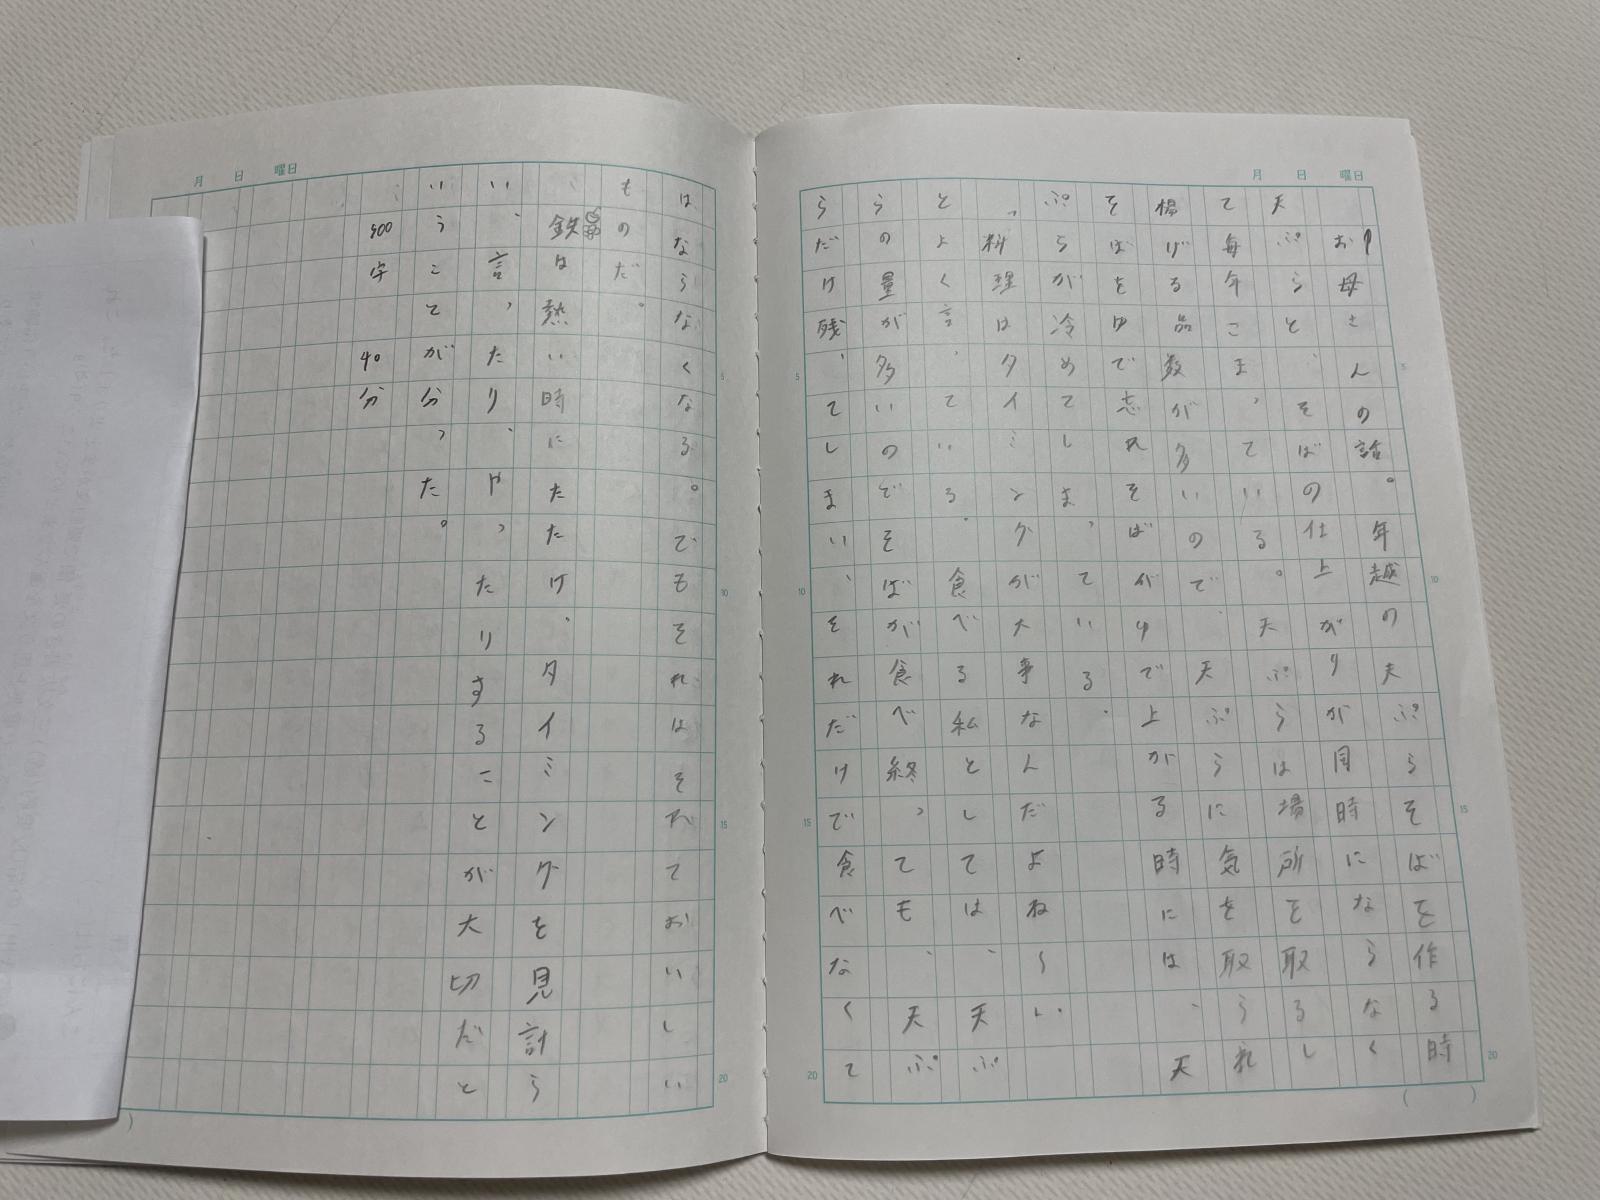 月 日 曜日
お母さんの話。年越の天ぷらそばを作る時
天ぷらと、そばの仕上がりが同時にならなく
て毎年こまっている。天ぷらは場所を取るし
揚げる品数が多いので、天ぷらに気を取られ
そばをゆで忘れそばがゆで上がる時には、天
ぷらが冷めてしまっている。
「料理はタイミングが大事なんだよね〜」
とよく言っている。食べる私としては、天ぷ
らの量が多いのでそばが食べ終っても、天ぷ
らだけ残ってしまい、それだけで食べなくて
5
10
15
20
月 日 曜日
はならなくなる。でもそれはそれておいしい
ものだ。
鉄は熱い時にたたけ、タイミングを見計ら
い、言ったり、やったりすることが大切だと
いうことが分った。
400字 40分
5
10
15
20